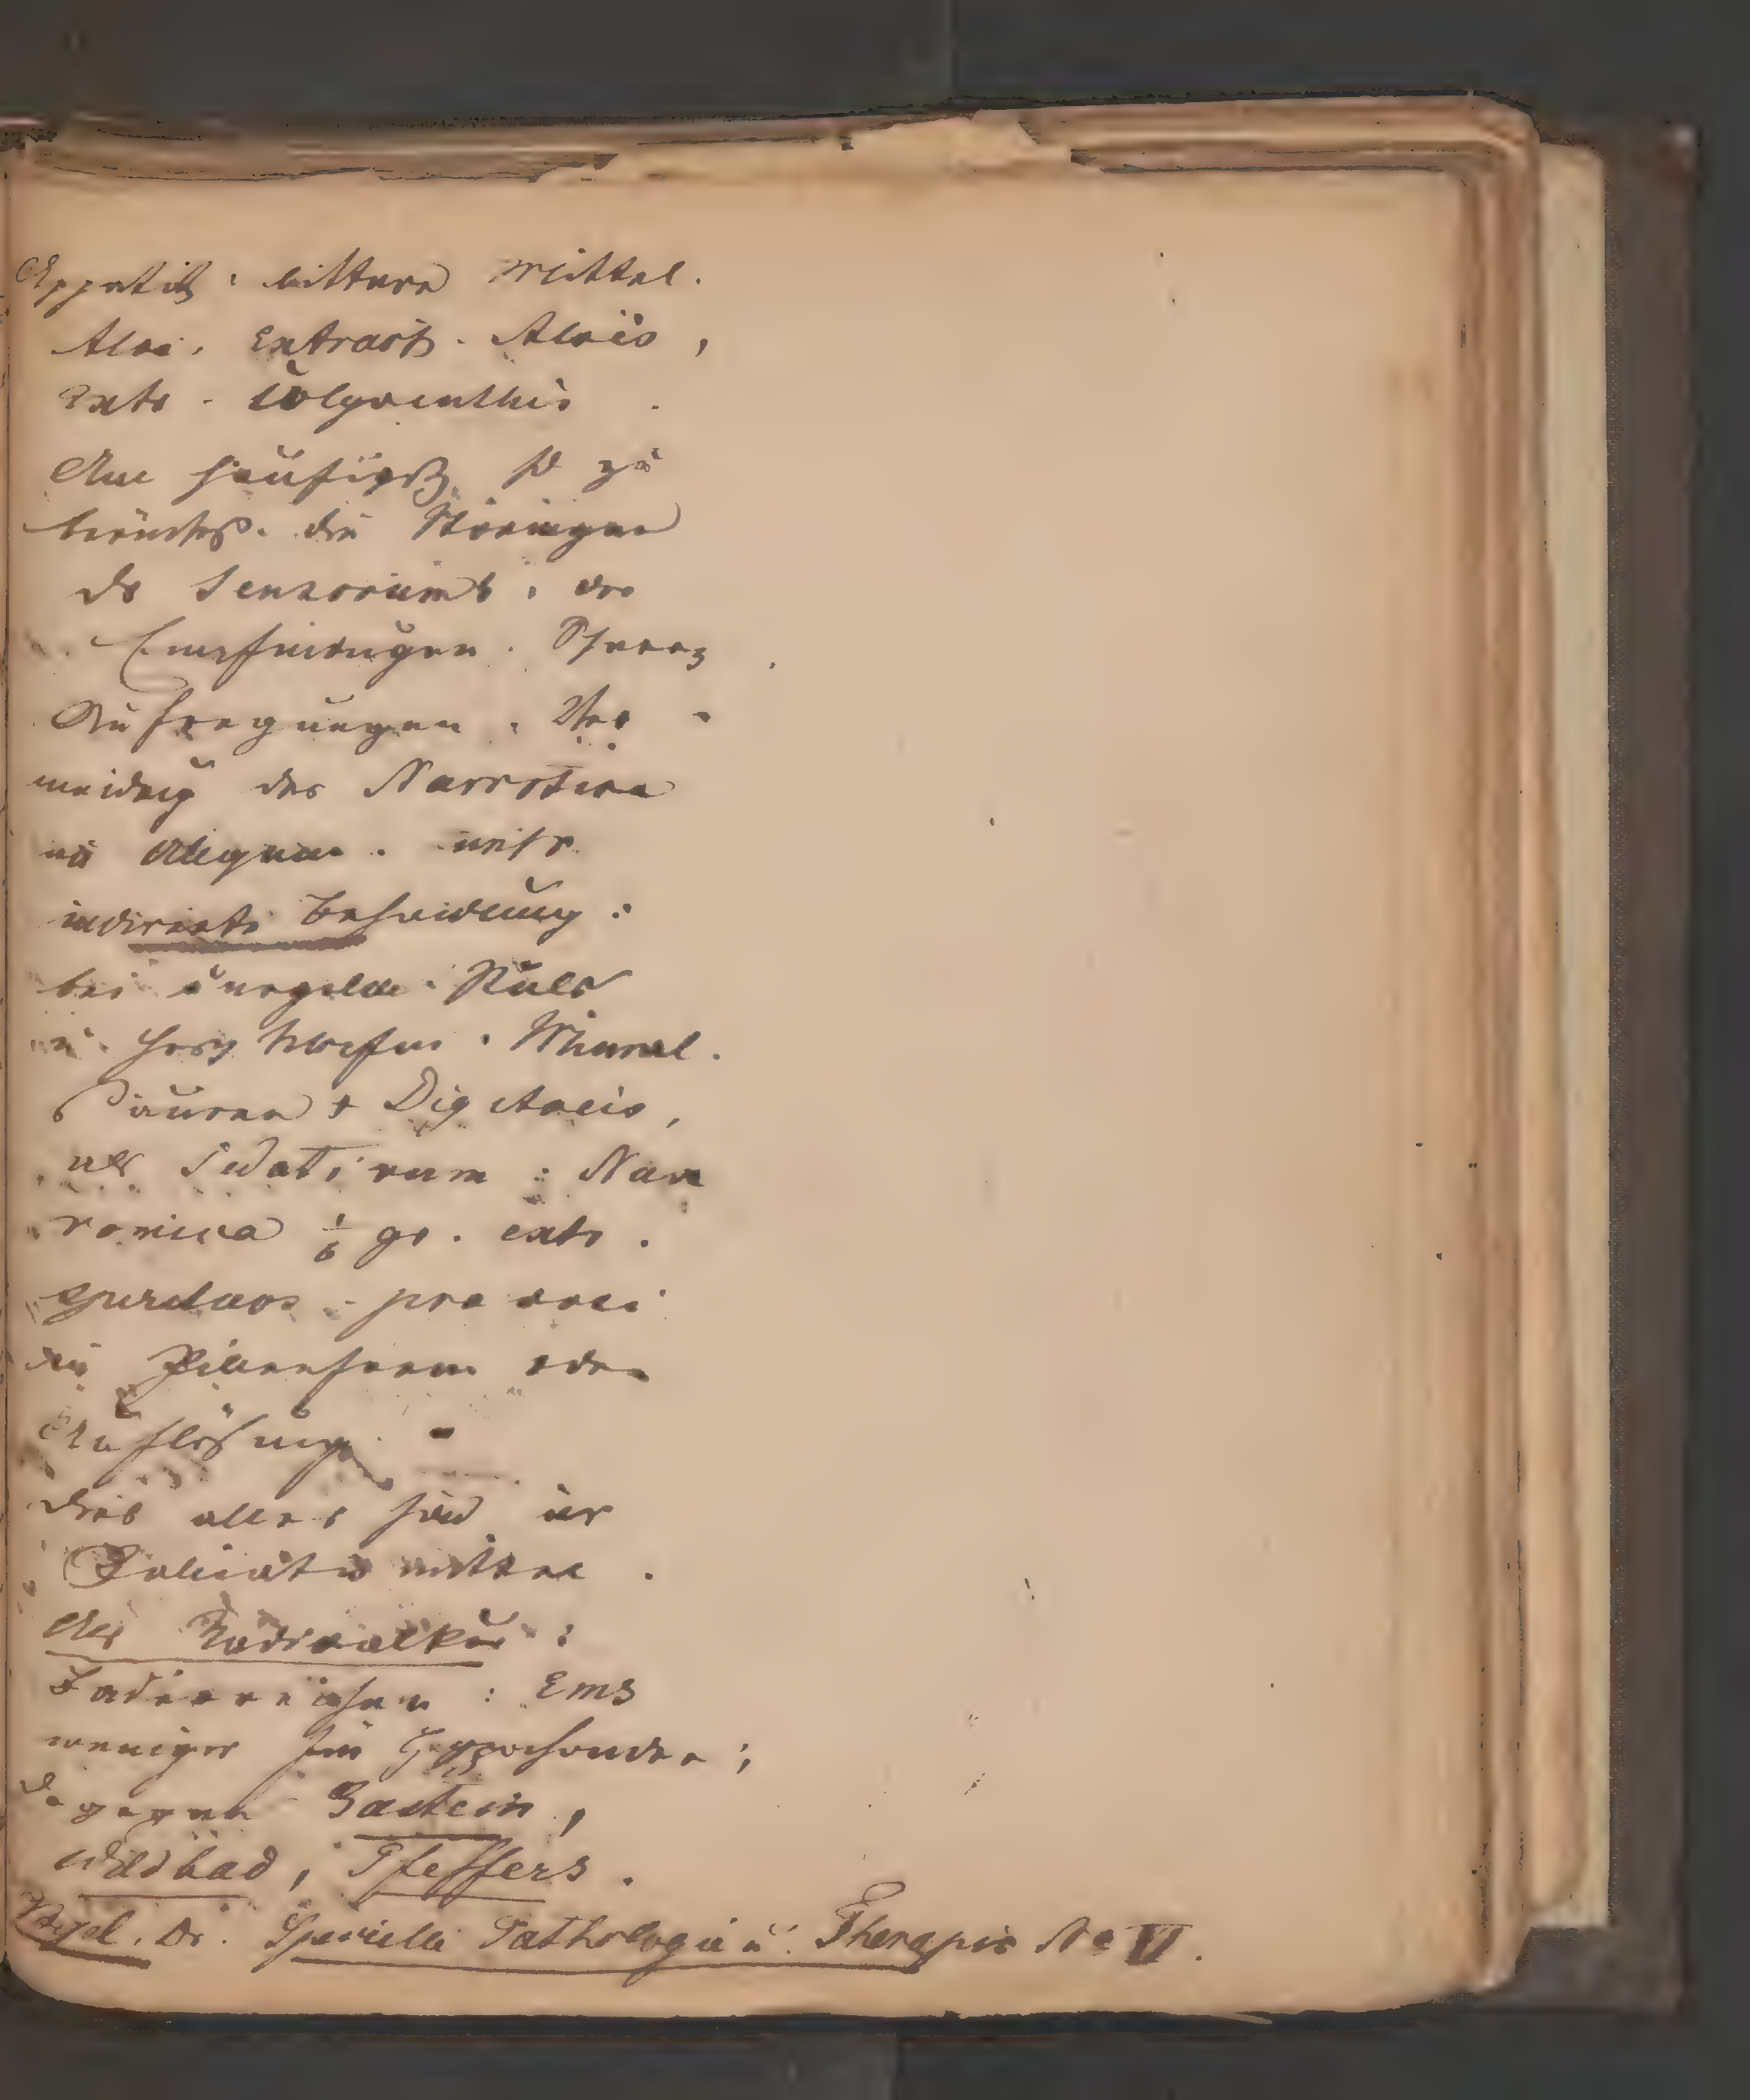 Appetit: bittere Mittel.
Aloe, Extract. Aloës,
Extr. Colocynthis
Am häufigst. sd zu
berücks. die Störungen
ds Sensoriums, der
Empfindungen. Schmerz
Aufregungen. Ver-
meidung der Narcotica
u
indirecte Behandlung:
bei Puls
u. Herzklopfen. Mineral.
Säuren + Digitalis,
als Sedativum: Nux
vomica 1/6 gr. extr.
spirituos. pro dosi
in Pillenform oder
Auflösung. -
dies alles sind nur
Palliativmittel.
Als Radicalkur:
Badereisen: Ems
weniger für Hypochonder;
dagegen Gastein,
Wildbad, Pfeffers.
Dr. Specielle Pathologie u. Therapie No VI.